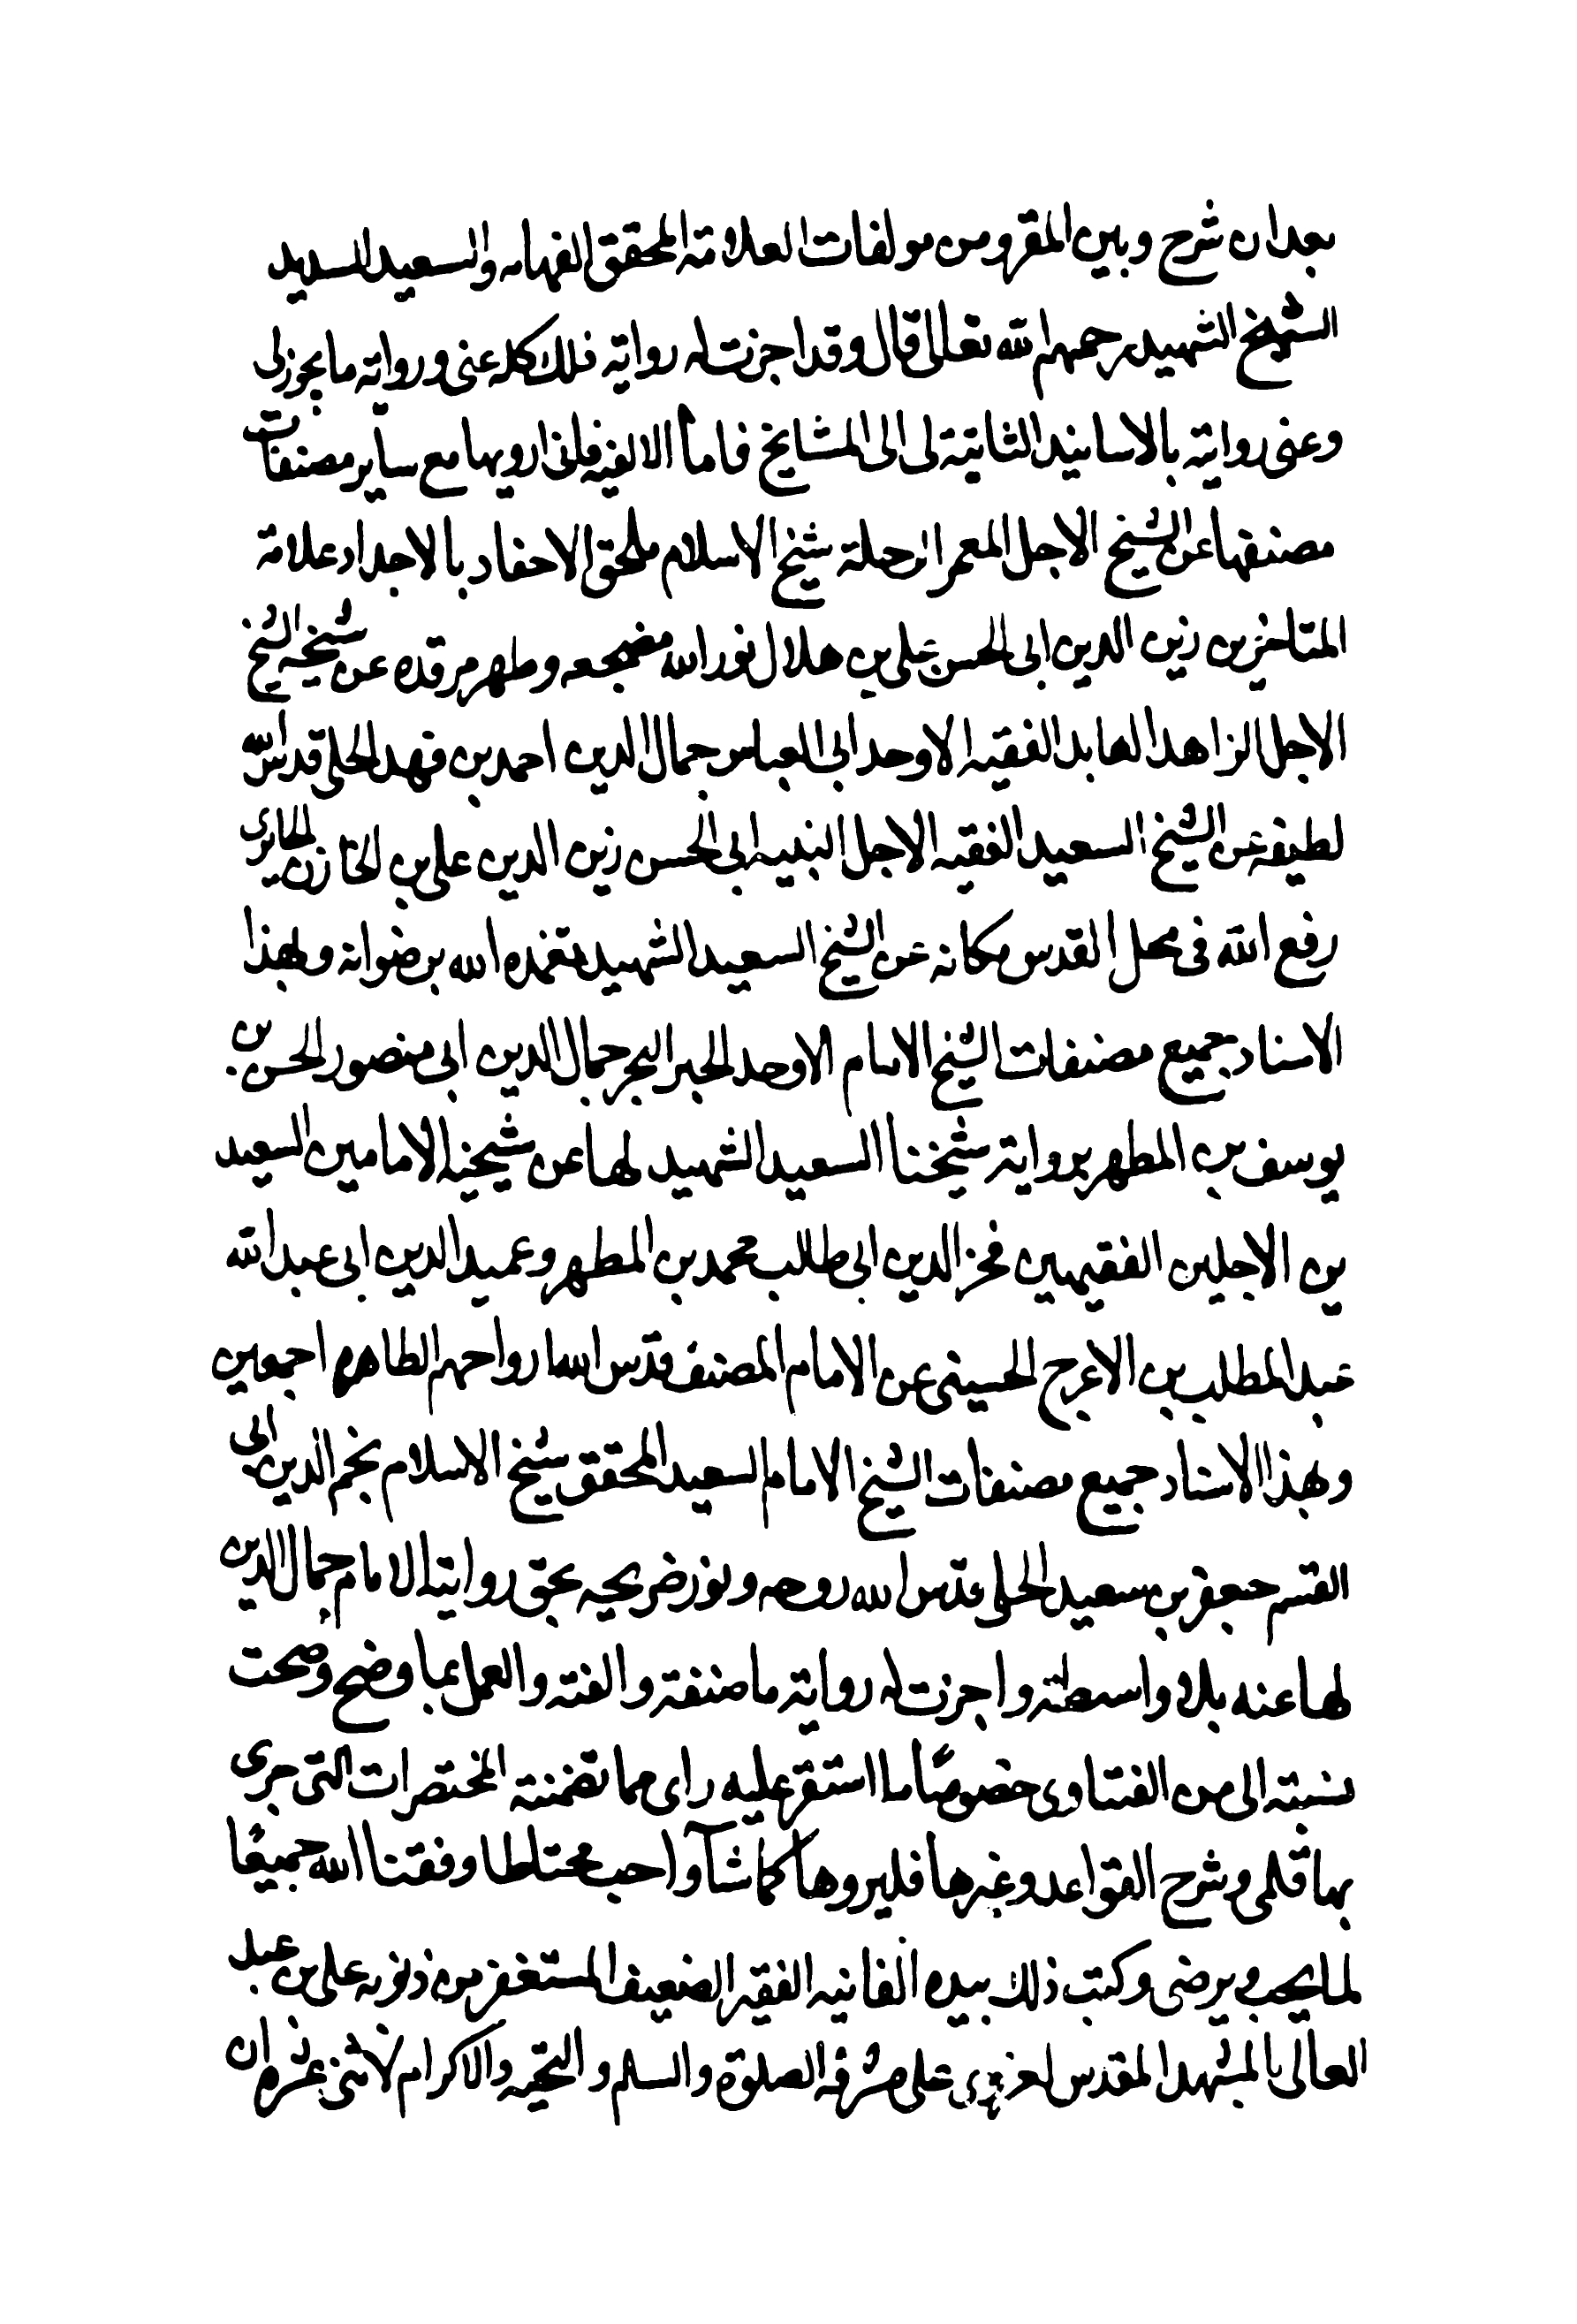 بعد ان شرح وبين المقرو من مولفات العلامة المحقق الفهامه والسعيد السديد
الشيخ الشهيد رحمهم الله تعالى قال وقد اجزت له رواية ذلك كله عنى ورواية ما يجوز لى
وعنى روايته بالاسانيد الثابتة لى الى المشايخ فاما الالفيه فانى ارويها مع ساير مصنفات
مصنفها عن الشيخ الاجل المعمر الرحلة شيخ الاسلام ملحق الاحفاد بالاجداد علامة
المتاخرين زين الدين ابى الحسن على بن هلال نور الله مضجعه وطهر مرقده عن شيخه الشيخ
الاجل الزاهد العابد الفقيه الاوحد ابى العباس جمال الدين احمد بن فهد الحلى قدس الله
لطيفه عن الشيخ السعيد الفقيه الاجل النبيه ابى الحسن زين الدين على بن الخازن الحائرى
رفع الله فى محل القدس مكانه عن الشيخ السعيد الشهيد تغمده الله برضوانه وبهذا
الاسناد جميع مصنفات الشيخ الامام الاوحد الحبر البحر جمال الدين ابى منصور الحسن بن
يوسف بن المطهر برواية شيخنا السعيد الشهيد لها عن شيخيه الامامين السعيد
ين الاجلين الفقيهين فخر الدين ابى طالب محمد بن المطهر وعميد الدين ابى عبد الله
عبد المطلب بن الاعرج الحسينى عن الامام المصنف قدس الله ارواحهم الطاهره اجمعين
وبهذا الاسناد جميع مصنفات الشيخ الامام السعيد المحقق شيخ الاسلام نجم الدين ابى
القسم جعفر بن سعيد الحلى قدس الله روحه ونور ضريحه بحق رواية الامام جمال الدين
لها عنه بلا واسطة واجزت له رواية ما صنفته والفته والعمل بما وضح وصحت
نسبته الى من الفتاوى خصوصًا ما استقر عليه راى مما تضمنته المختصرات التى جرى
بها قلمى وشرح القواعد وغيرها فليروها كما شآء واحب محتاطا وفقنا الله جميعًا
لما يحب ويرضى وكتب ذلك بيده الفانيه الفقير الضعيف المستغفر من ذنوبه على بن عبد
العالى بالمشهد المقدس الغروى على مشرفه الصلوة والسلم والتحيه والاكرام لاثنى عشره ان